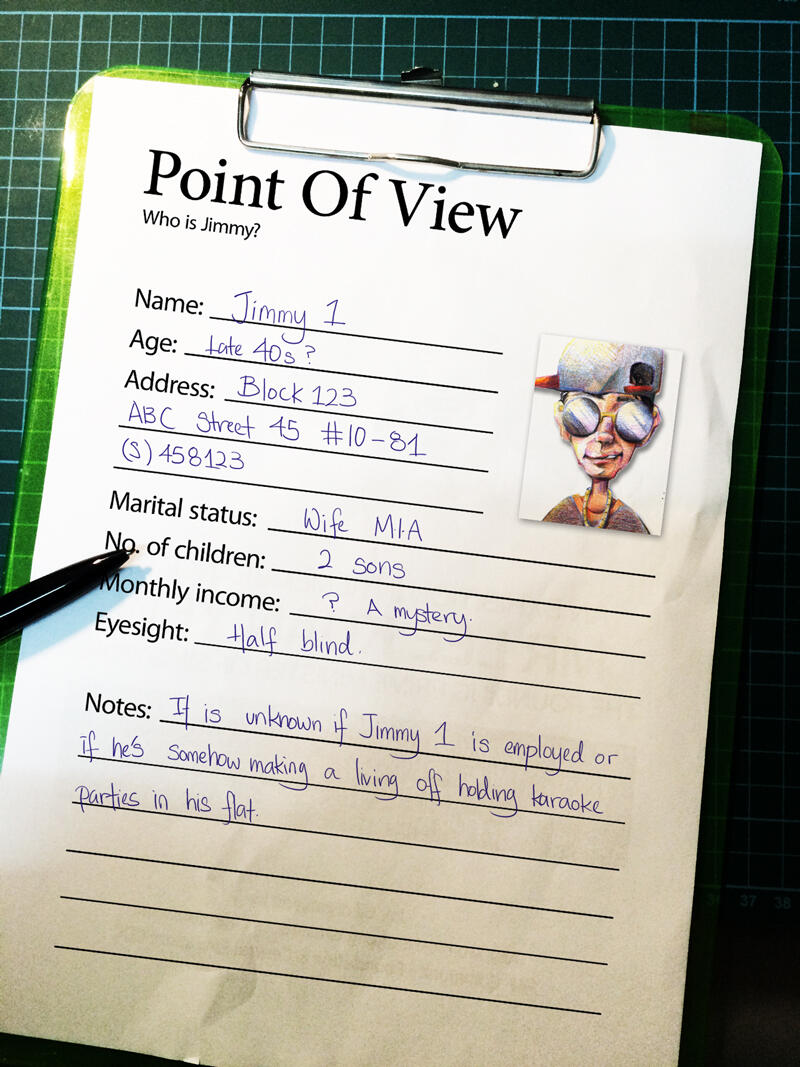 Point Of View
Who is Jimmy?
Name: Jimmy 1
Age: Late 40s?
Address: Block 123
ABC Street 45 #10-81
(S) 458123
Marital status: Wife M.I.A
No. of children: 2 sons
Monthly income: ? A mystery.
Eyesight: Half blind.
Notes: It is unknown if Jimmy 1 is employed or
if he's somehow making a living off holding karaoke
parties in his flat.
37 38